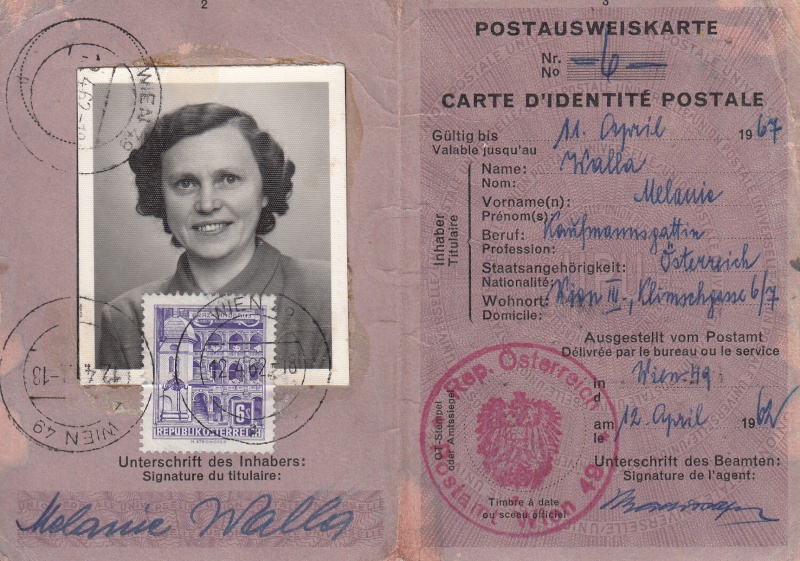 2
WIEN 49
WIEN 49
12.4.62.-18
WIEN 49
6S
REPUBLIK ÖSTERREICH
Unterschrift des Inhabers:
Signature du titulaire:
Melanie Walla
3
POSTAUSWEISKARTE
Nr.
No
-6-
CARTE D'IDENTITÉ POSTALE
Gültig bis
Valable jusqu'au
11. April 1967
Inhaber
Titulaire
Name:
Nom:
Walla
Vorname(n):
Prénom(s):
Melanie
Beruf:
Profession:
Kaufmannsgattin
Staatsangehörigkeit:
Nationalité:
Österreich
Wohnort:
Domicile:
Wien III., Klimschgasse 6/7
Ausgestellt vom Postamt
Délivrée par le bureau ou le service
in
d
Wien 49
am
le
12. April 1962
OT-Stempel
oder Amtssiegel
Rep. Österreich
Postamt Wien 49
Timbre à date
ou sceau officiel
Unterschrift des Beamten:
Signature de l'agent: